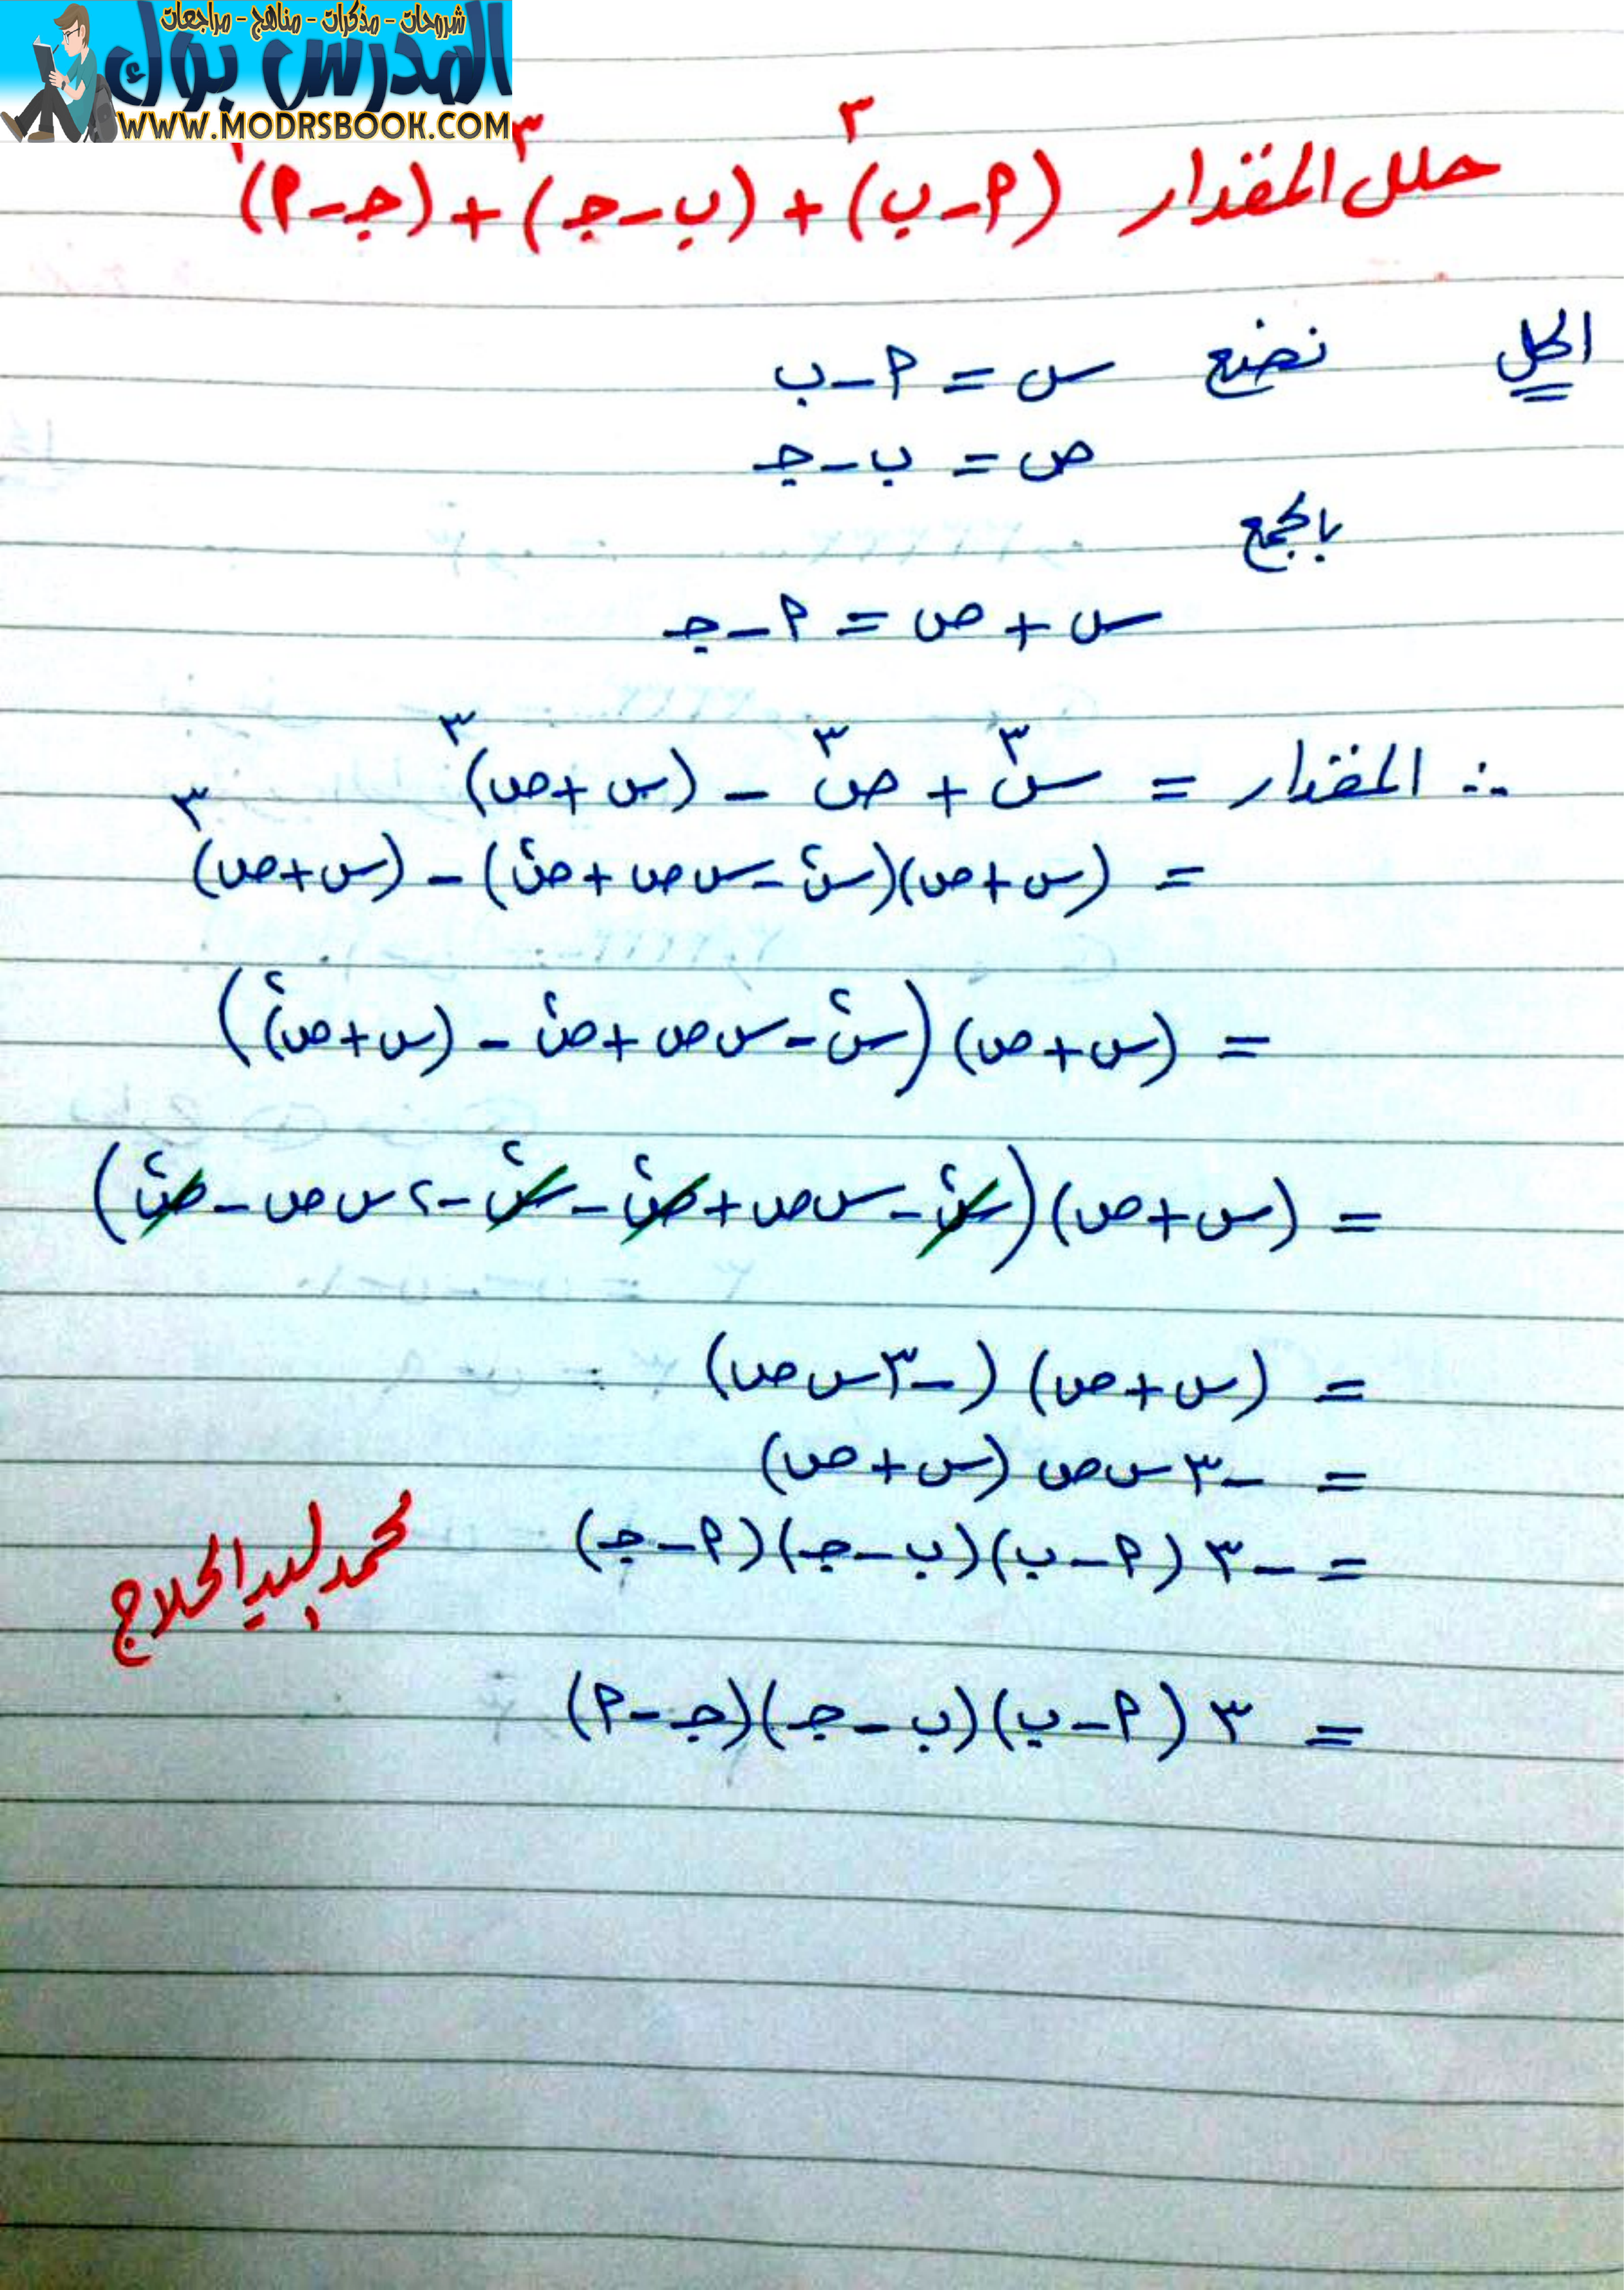 شروحات - مذكرات - مناهج - مراجعات
المدرس بوك
WWW.MODRSBOOK.COM
حلل المقدار (أ - ب)³ + (ب - جـ)³ + (جـ - أ)
الحل نضع س = أ - ب
ص = ب - جـ
بالجمع
س + ص = أ - جـ
∴ المقدار = س³ + ص³ - (س + ص)³
= (س + ص)(س² - س ص + ص²) - (س + ص)³
= (س + ص)(س² - س ص + ص² - (س + ص)²)
= (س + ص)(س² - س ص + ص² - س² - ٢ س ص - ص²)
= (س + ص)(-٣ س ص)
= -٣ س ص (س + ص)
= -٣ (أ - ب)(ب - جـ)(أ - جـ)
محمد السيد الحلاج
= ٣ (أ - ب)(ب - جـ)(جـ - أ)